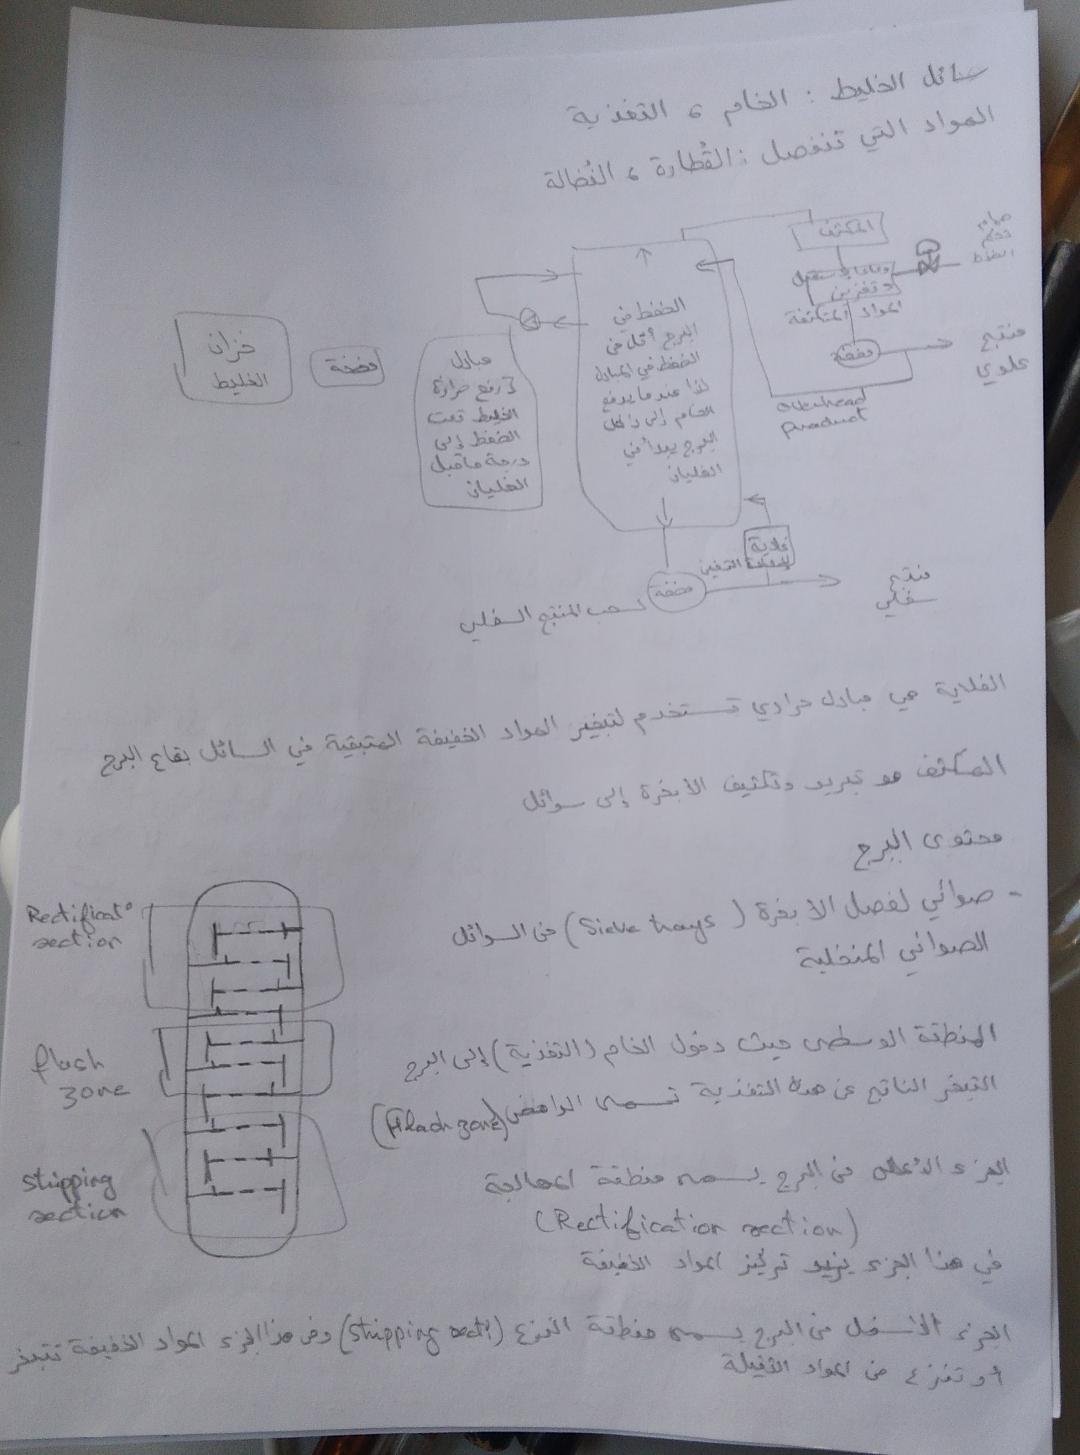 سائل الخليط : الخام ، التغذية
المواد التي تنفصل : القُطارة ، الثُضالة
المكثف
صمام
تحكم
الضغط
وعاء لاستقبال
وتخزين
المواد المتكثفة
مضخة
منتج
علوي
overhead
product
خزان
الخليط
مضخة
مبادل
لرفع حرارة
الخليط تحت
الضغط إلى
درجة ما قبل
الغليان
الضغط في
البرج أقل من
الضغط في المبادل
لذا عندما يدفع
الخام إلى داخل
البرج يبدأ في
الغليان
غلاية
التبخير
مضخة
لسحب المنتج السفلي
منتج
سفلي
الغلاية هي مبادل حراري تستخدم لتبخير المواد الخفيفة المتبقية في السائل بقاع البرج
المكثف هو تبريد وتكثيف الأبخرة إلى سوائل
محتوى البرج
- صوائي لفصل الأبخرة (Sieve trays) من السوائل
الصوائي المنخلية
Rectificat°
section
flash
zone
stripping
section
المنطقة الوسطى حيث دخول الخام (التغذية) إلى البرج
التبخر الناتج عن هذه التغذية تسمى الوامض (flach zone)
الجزء الأعلى من البرج يسمى منطقة المعالجة
(Rectification section)
في هذا الجزء يزيد تركيز المواد الخفيفة
الجزء الأسفل من البرج يسمى منطقة النزع (stripping sect°) وفي هذا الجزء المواد الخفيفة تتبخر
أو تنزع من المواد الثقيلة